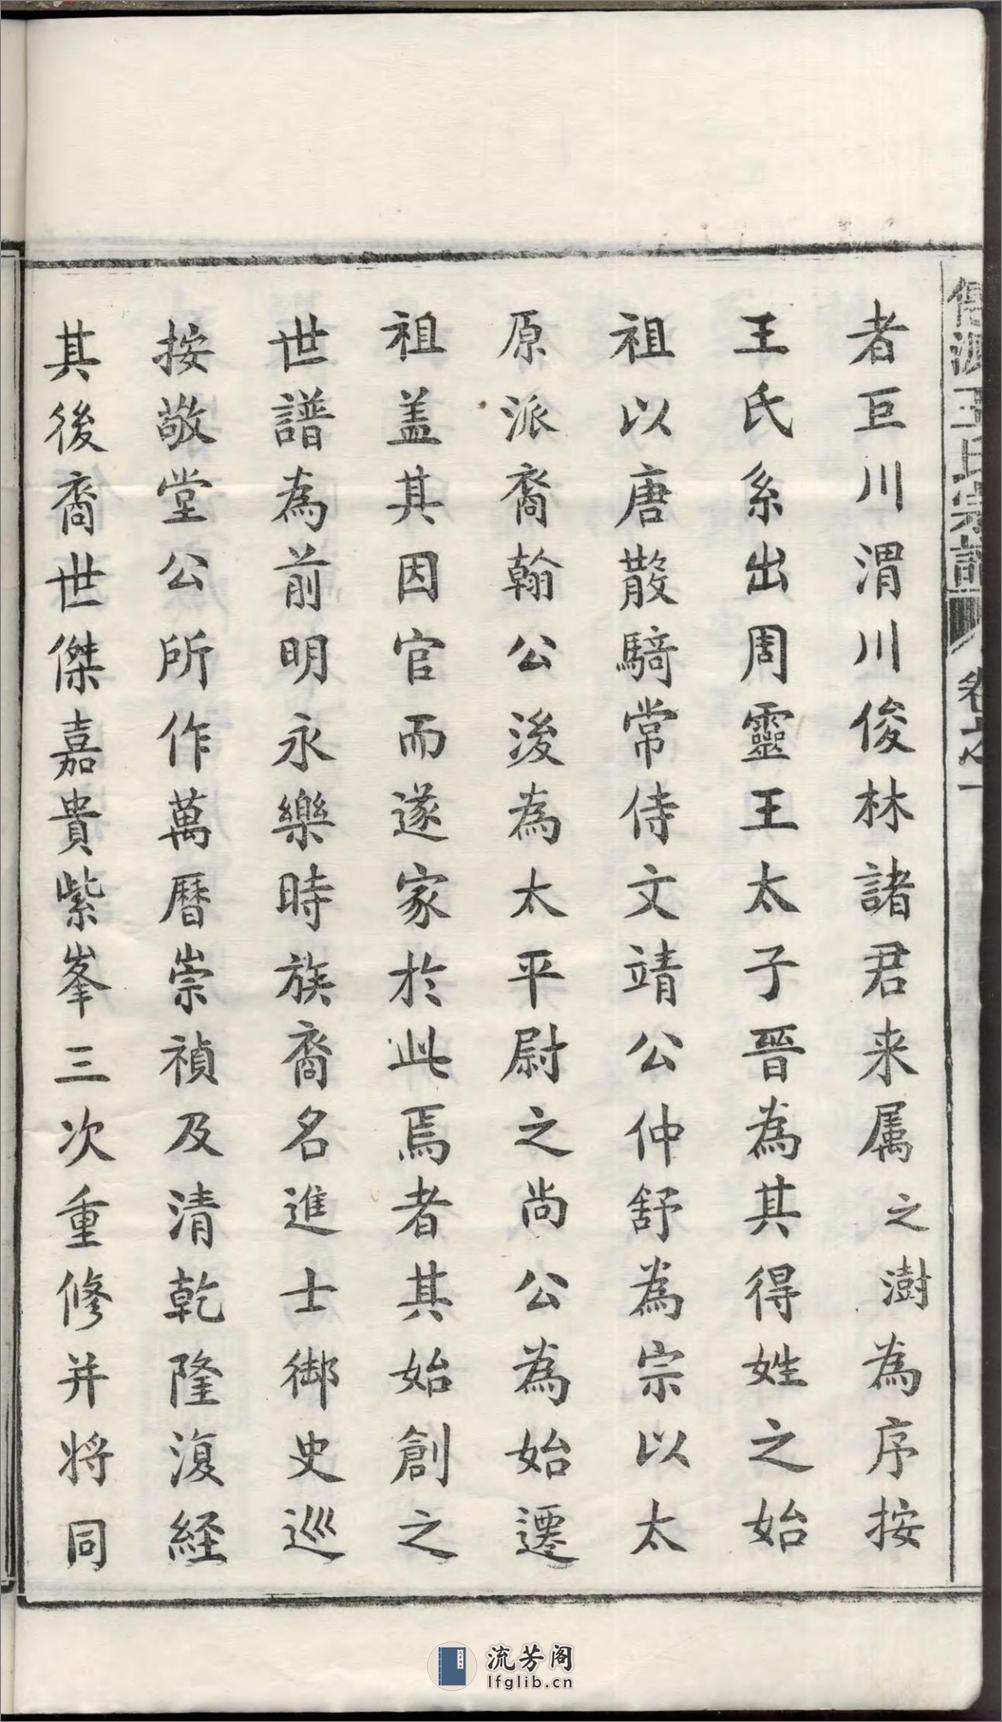 王氏宗譜 卷之一
者巨川渭川俊林諸君来属之澍為序按
王氏系出周靈王太子晉為其得姓之始
祖以唐散騎常侍文靖公仲舒為宗以太
原派裔翰公後為太平尉之尚公為始遷
祖盖其因官而遂家於此焉者其始創之
世譜為前明永樂時族裔名進士御史巡
按敬堂公所作萬曆崇禎及清乾隆復経
其後裔世傑嘉貴紫峯三次重修并将同
流芳阁
lfglib.cn